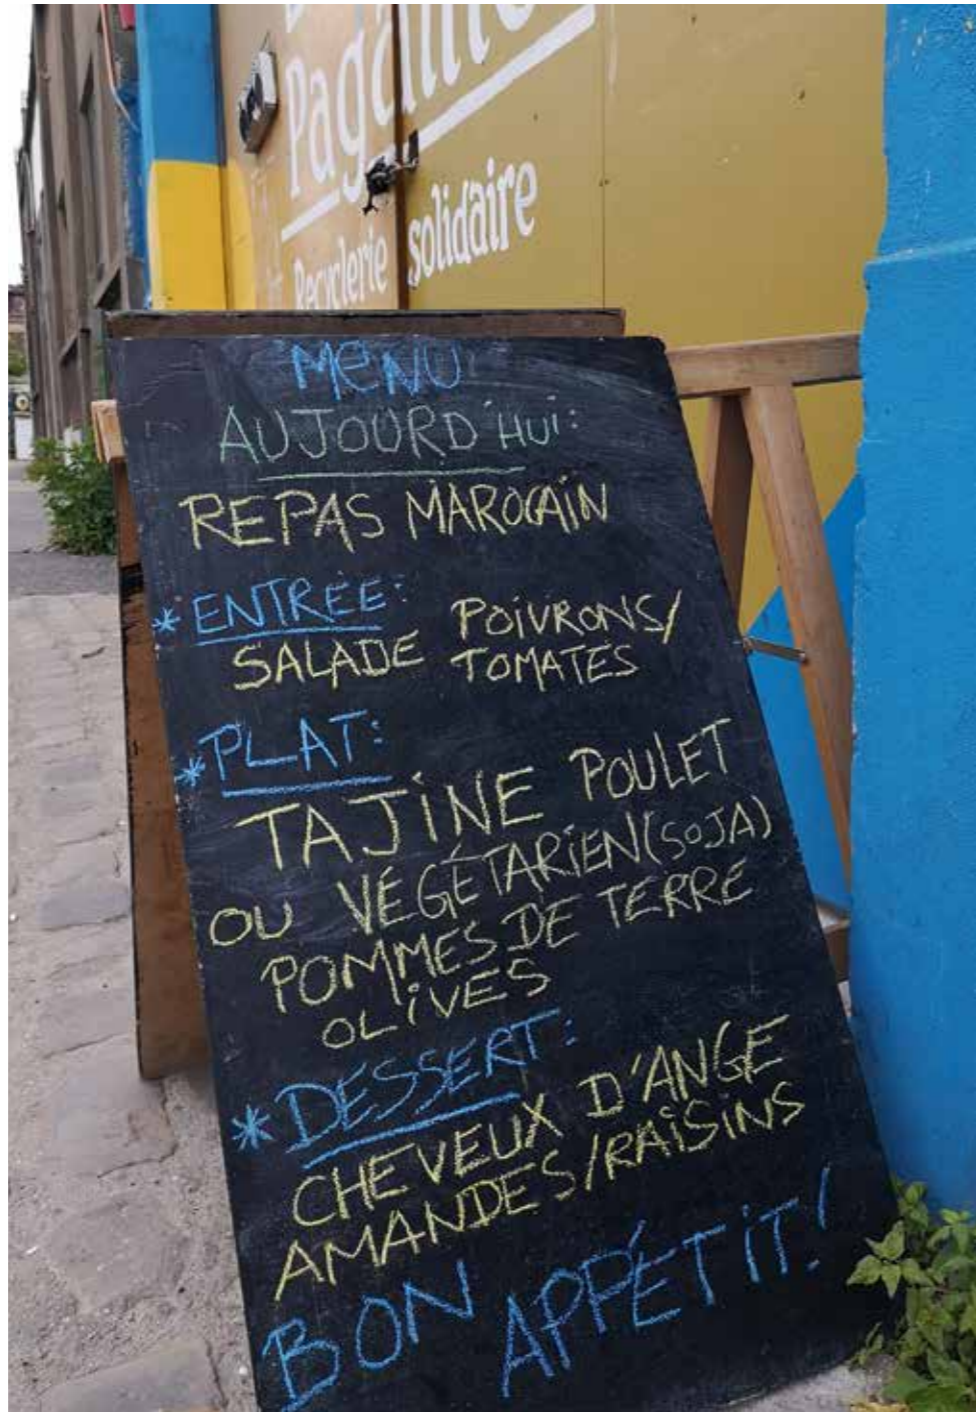 Pagaille
Recyclerie solidaire
MENU
AUJOURD'HUI:
REPAS MAROCAIN
*ENTREE:
SALADE POIVRONS/
TOMATES
*PLAT:
TAJINE POULET
OU VÉGÉTARIEN(SOJA)
POMMES DE TERRE
OLIVES
*DESSERT:
CHEVEUX D'ANGE
AMANDES/RAISINS
BON APPÉTIT!